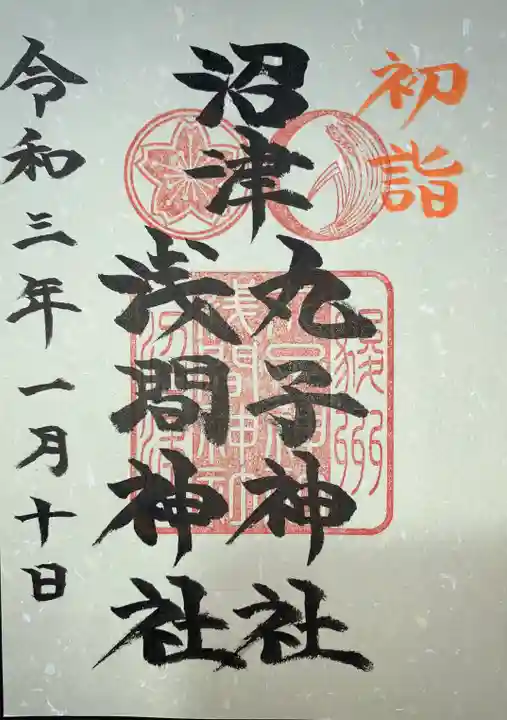 初詣
沼津
丸子神社
浅間神社
令和三年一月十日